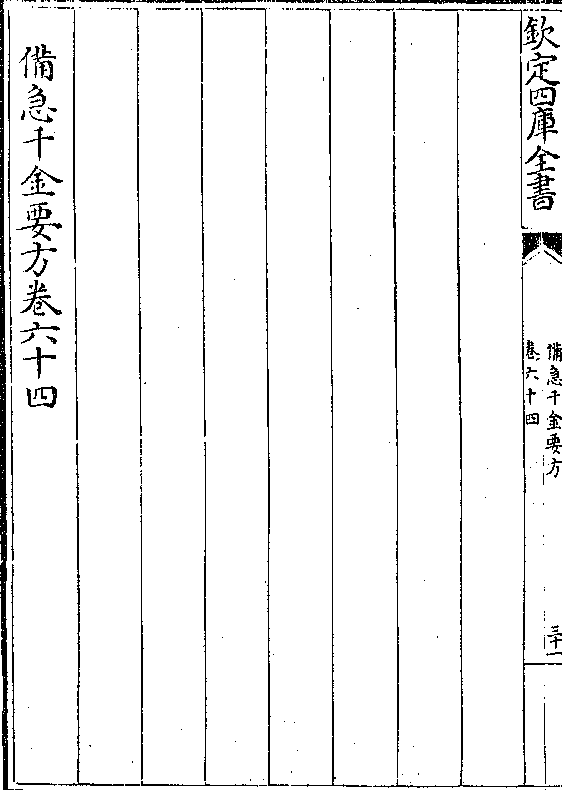 欽定四庫全書
備急千金要方
卷六十四
三十一
備急千金要方卷六十四